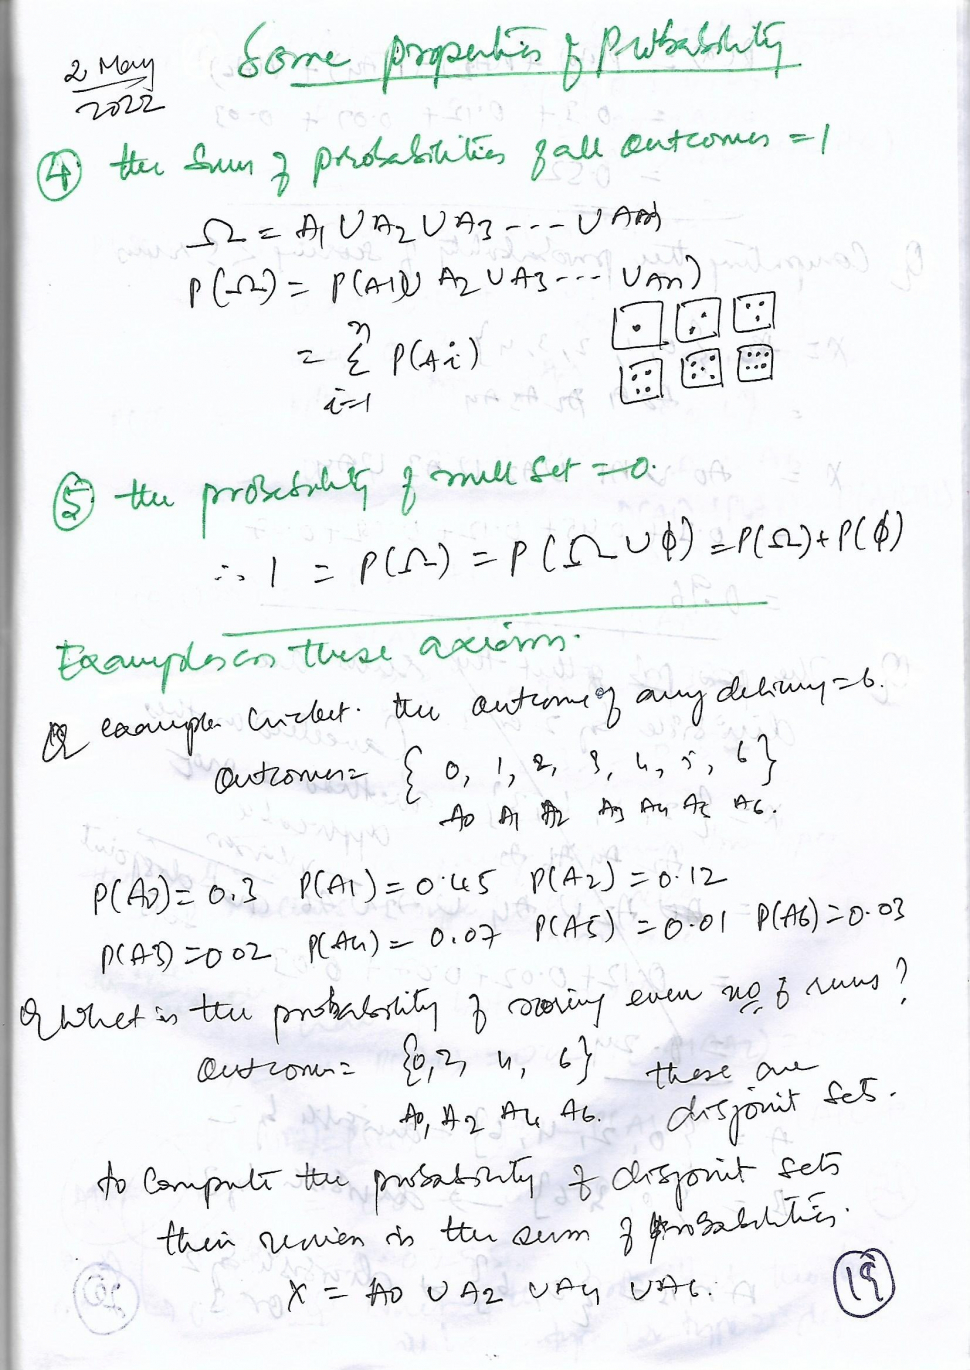 Some properties of Probability
2 May
2022
④ the Sum of probabilities of all outcomes = 1
Ω = A1 ∪ A2 ∪ A3 --- ∪ An
P(Ω) = P(A1 ∪ A2 ∪ A3 --- ∪ An)
= Σ P(Ai)
n
i=1
⑤ the probability of null set = 0.
∴ 1 = P(Ω) = P(Ω ∪ ϕ) = P(Ω) + P(ϕ)
Examples on these axioms.
Q example cricket. the outcome of any delivery = 6.
outcomes = { 0, 1, 2, 3, 4, 5, 6 }
A0 A1 A2 A3 A4 A5 A6.
P(A0) = 0.3 P(A1) = 0.45 P(A2) = 0.12
P(A3) = 0.02 P(A4) = 0.07 P(A5) = 0.01 P(A6) = 0.03
Q What is the probability of scoring even no of runs?
Outcome = {0, 2, 4, 6} these are
A0, A2 A4 A6. disjoint sets.
to compute the probability of disjoint sets
their union is the sum of probabilities.
X = A0 ∪ A2 ∪ A4 ∪ A6.
19